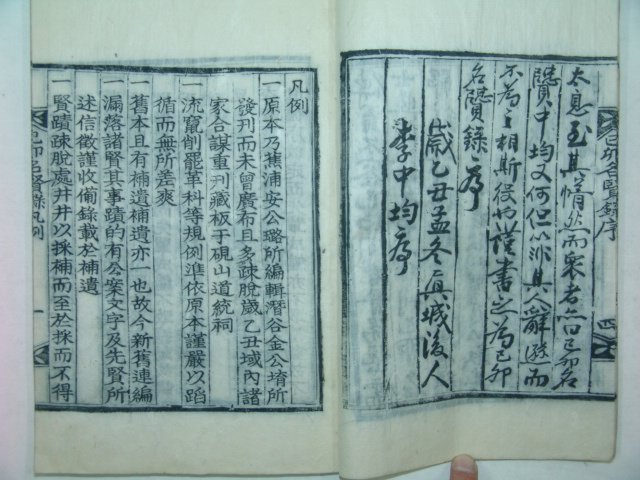 己卯名賢錄序
四
太息至其惜然而來者□曰己卯名
賢中均又何但以非其人辭遜而
不為之相斯役也謹書之為己卯
名賢錄序
歲乙丑孟冬真城後人
李中均序
凡例
一原本乃蕉浦安公璐所編輯潛谷金公堉所
發刊而未曾廣布且多疎脫歲乙丑域內諸
家合謀重刊藏板于硯山道統祠
一流竄削罷革科等規例準依原本謹嚴以蹈
循而無所差爽
一舊本且有補遺補遺亦一也故今新舊連編
一漏落諸賢其事蹟的有公案文字及先賢所
迷信徵謹收備錄載於補遺
一賢蹟疎脫處井井以採補而至於採而不得
己卯名賢錄凡例
一